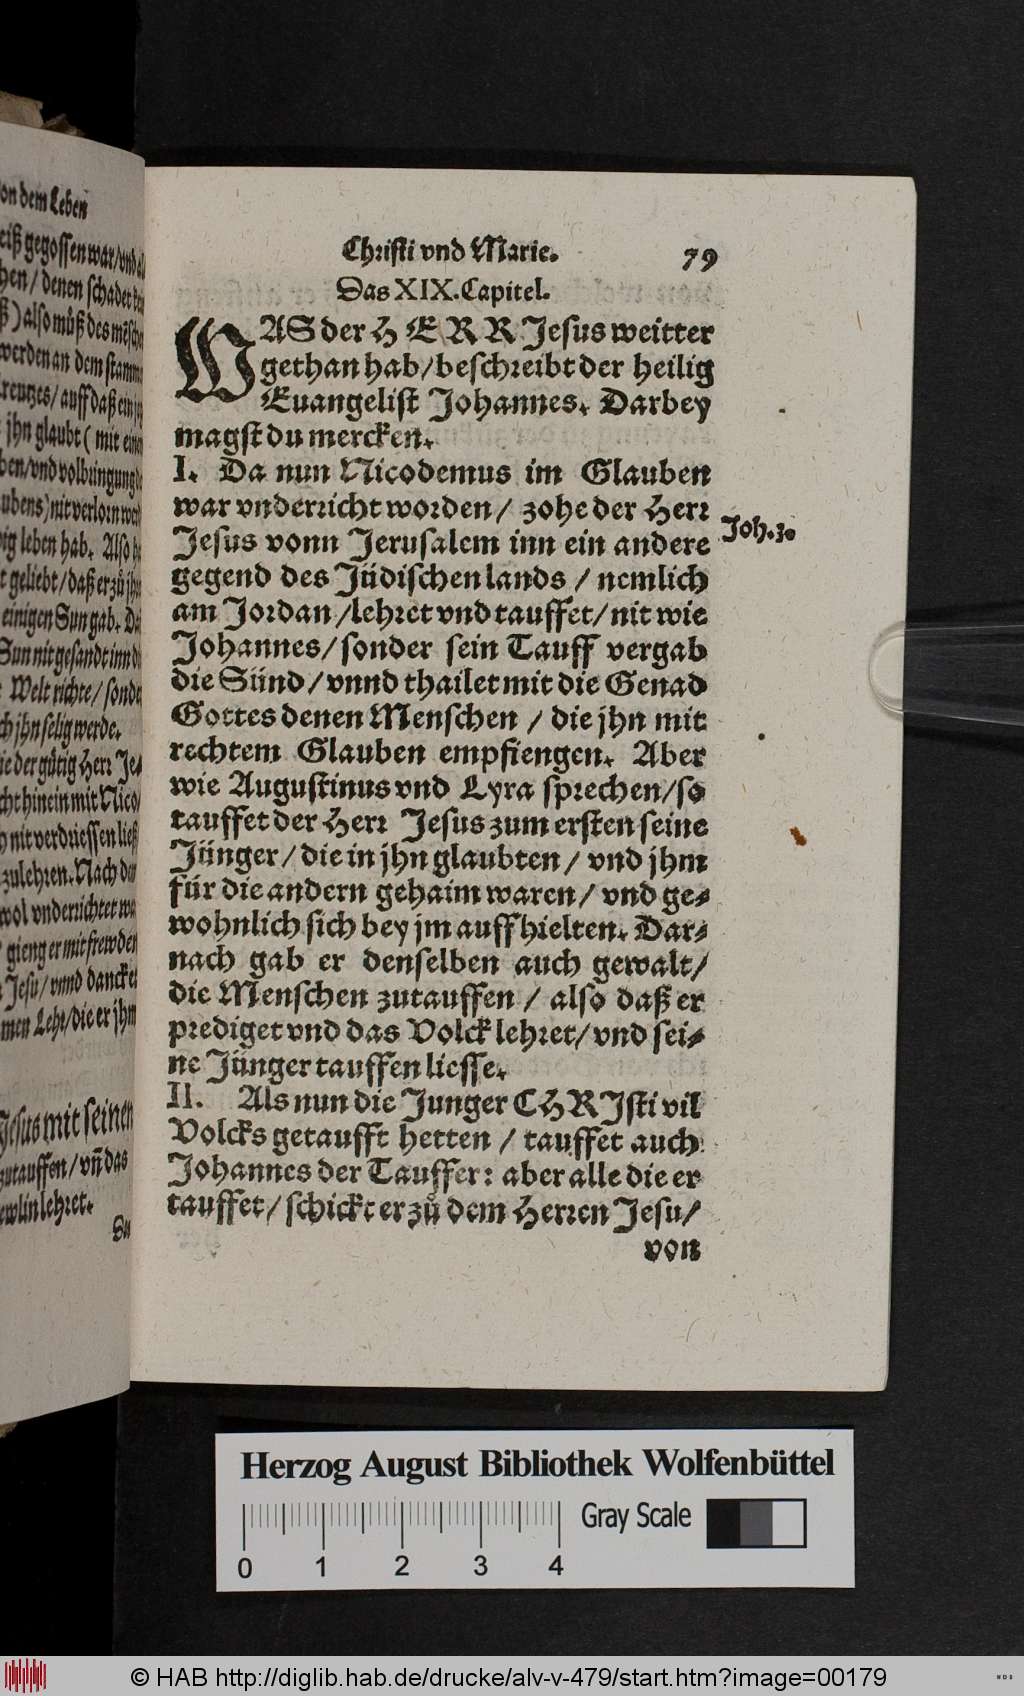 on dem Leben
eiß gegossen war/ vnd
hen/ denen schadet
ß) also můß des mẽsche
werden an dem stamm
reutzes/ auff daß ein
jhn glaubt ( mit
ben/ vnd volbringung
ubens) nit verlorn
ig leben hab. Also
t geliebt/ daß er zů
einigen Sun gab.
Sun nit gesandt inn
Welt richte/ sonde
ch jhn selig werde.
ie der gůtig Herr Je-
cht hinein mit Nico
nit verdriessen ließ
zulehren. Nach dem
wol vnderrichtet
gieng er mit frewden
Jesu/ vnnd dancket
men Lehr/ die er jhm
Jesus mit seinen
zutauffen/ vñ das
ewlin lehret.
Christi vnd Marie. 79
Das XIX. Capitel.
WAS der HERR Jesus weitter
gethan hab/ beschreibt der heilig
Euangelist Johannes. Darbey
magst du mercken.
I. Da nun Nicodemus im Glauben
war vnderricht worden/ zohe der Herr
Joh. 3.
Jesus vonn Jerusalem inn ein andere
gegend des Jüdischen lands / nemlich
am Jordan / lehret vnd tauffet/ nit wie
Johannes/ sonder sein Tauff vergab
die Sünd / vnnd thailet mit die Genad
Gottes denen Menschen / die jhn mit
rechtem Glauben empfiengen. Aber
wie Augustinus vnd Lyra sprechen/ so
tauffet der Herr Jesus zum ersten seine
Jünger/ die in jhn glaubten / vnd jhm
für die andern gehaim waren/ vnd ge-
wohnlich sich bey jm auff hielten. Dar-
nach gab er denselben auch gewalt/
die Menschen zutauffen / also daß er
prediget vnd das Volck lehret/ vnd sei-
ne Jünger tauffen liesse.
II. Als nun die Junger CHRJsti vil
Volcks getaufft hetten / tauffet auch
Johannes der Tauffer: aber alle die er
tauffet/ schickt er zů dem Herren Jesu/
von
Herzog August Bibliothek Wolfenbüttel
Gray Scale
0 1 2 3 4
© HAB http://diglib.hab.de/drucke/alv-v-479/start.htm?image=00179